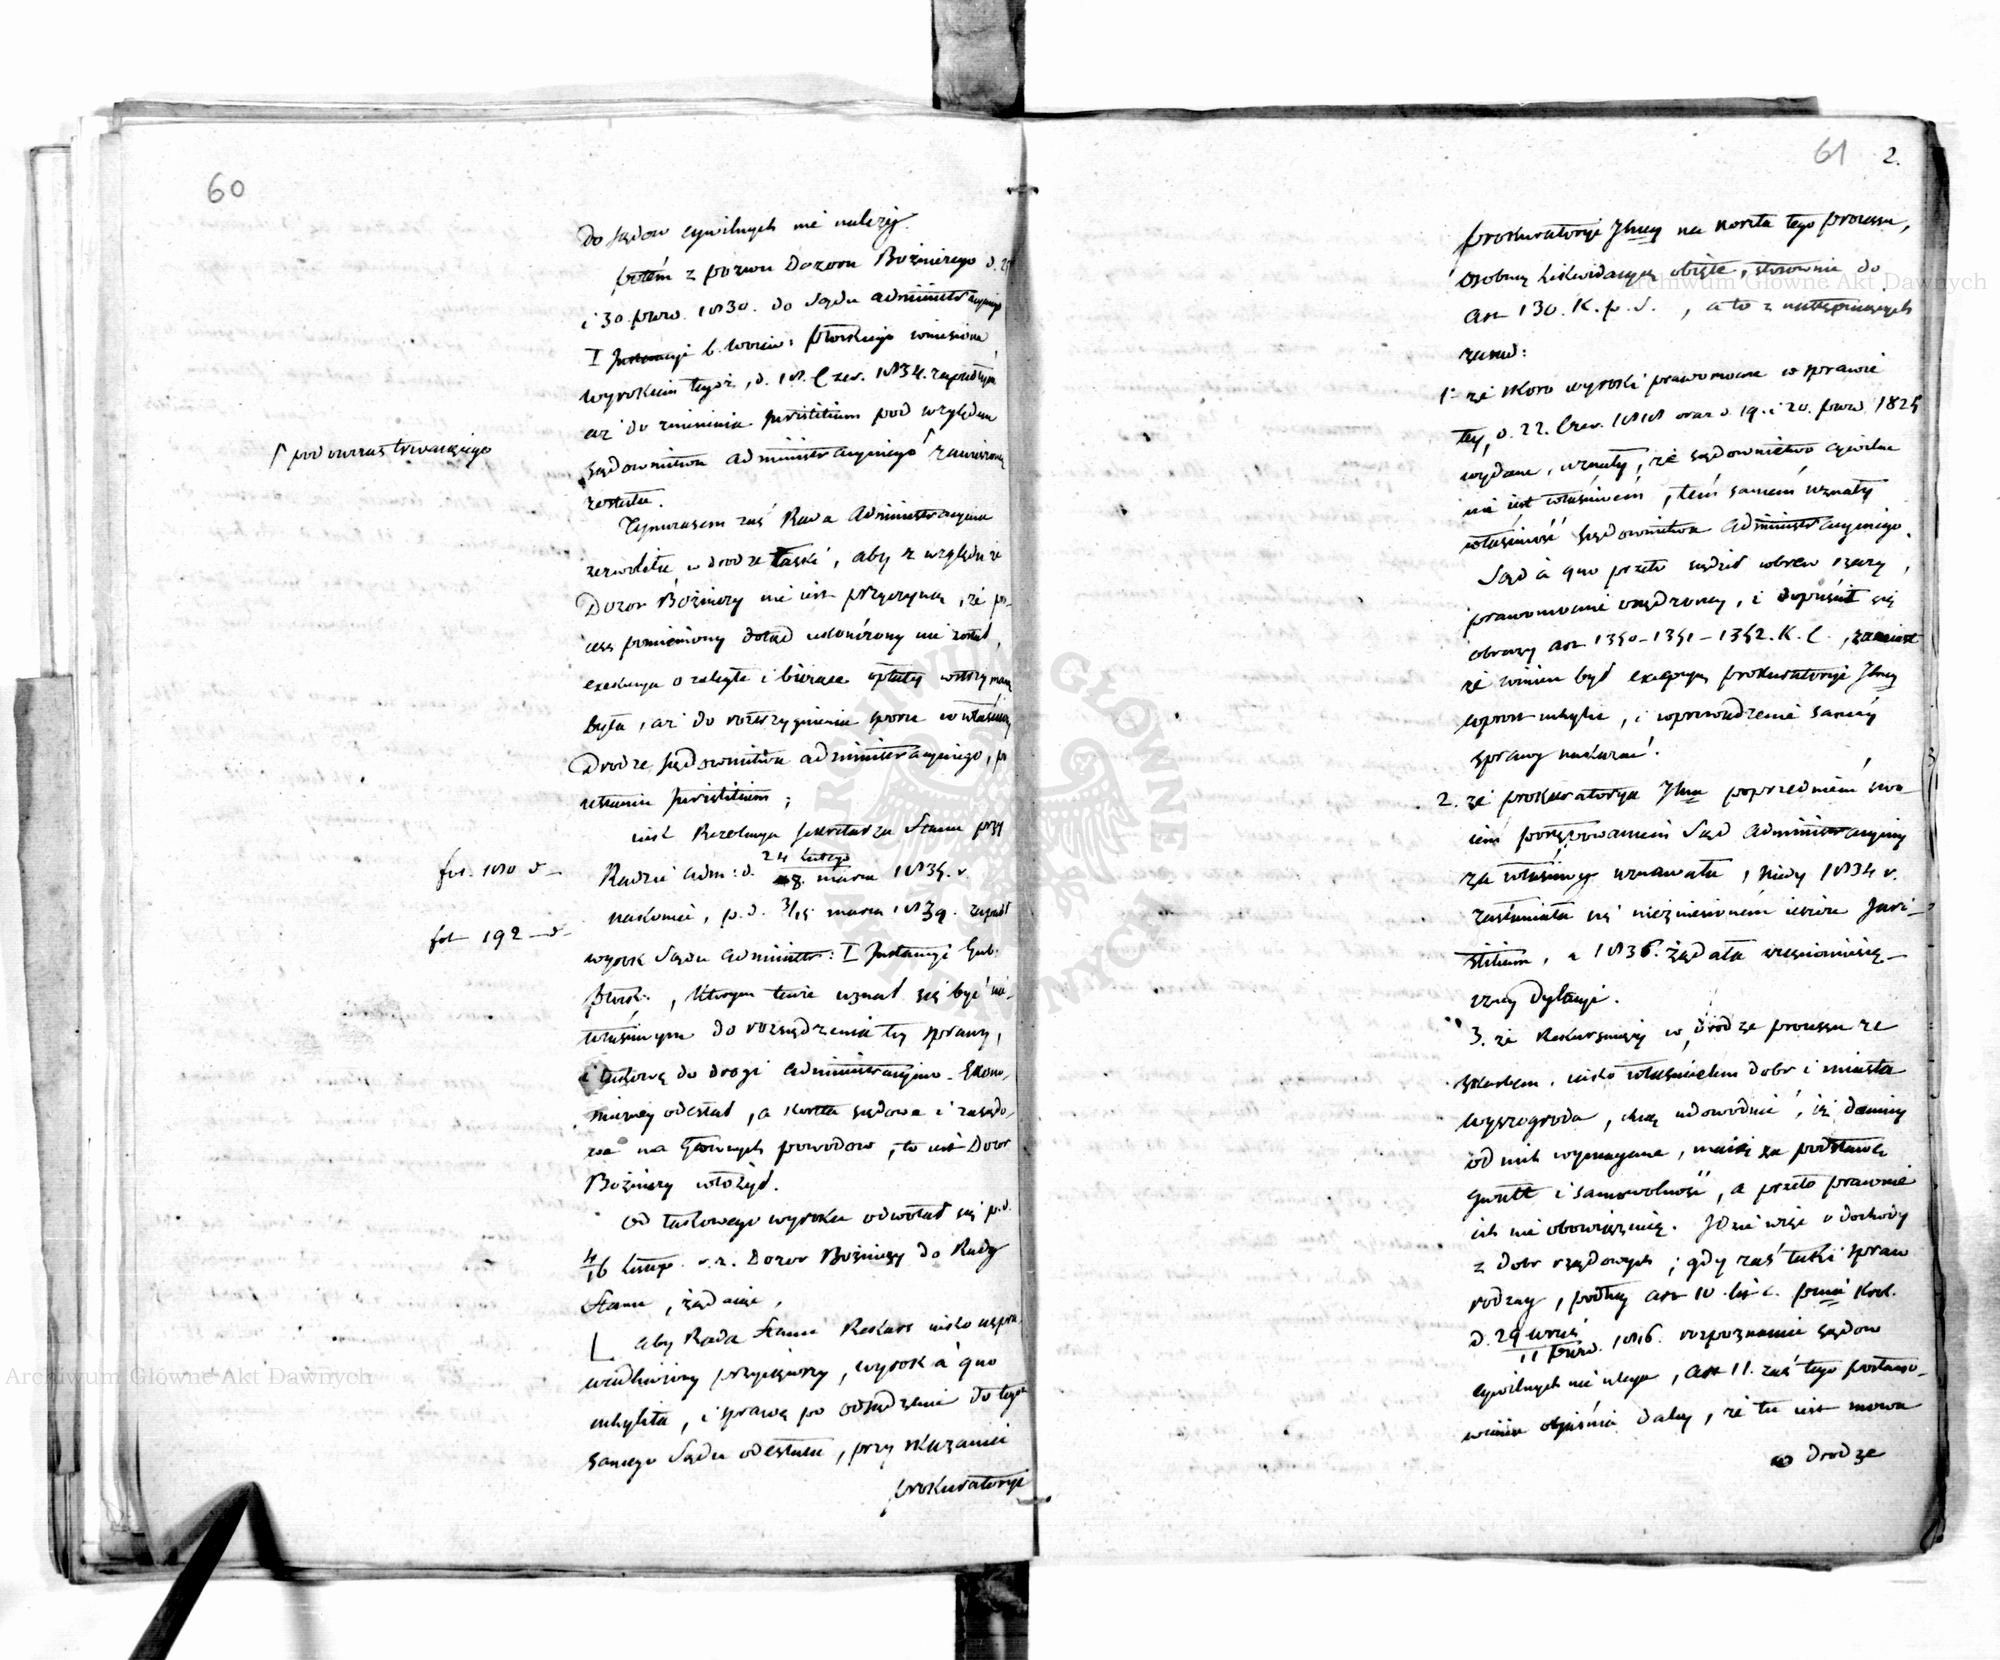 60
do sądów cywilnych nie należy.
potem z pozwu Dozoru Bożniczego d. 29
i 30. paźd. 1830. do Sądu administracyjnego
I Instancyi b. woiew: płockiego wniesiona
wyrokiem tegoż, d. 18. Czer. 1834. zapadłym
aż do zniesienia Justitium pod względem
sądownictwa administracyjnego ⌈ zawieszoną
została.
⌈ podówczas trwaiącego
Tymczasem zaś Rada Administracyjna
zezwoliła w drodze łaski, aby z względu że
Dozor Bożniczy nie iest przyczyną, że pro-
cess pomieniony dotąd ukończony nie został,
exekucya o zaległe i bieżące opłaty wstrzymaną
była, aż do rozstrzygnienia sporu w właściwey
Drodze sądownictwa administracyjnego, po
ustaniu Justitium;
iest Rezolucya Sekretarza Stanu przy
fol. 180 v –
Radzie Adm: d. 24 Lutego / 8. marca 1835. r.
nakoniec, p. d. 3/15 marca 1839. zapadł
fol 192 – v –
wyrok Sądu administr: I Instancyi Gub:
Płock:, którym tenże uznał się być nie-
właściwym do rozsądzenia tey sprawy,
i takową do drogi administracyjno-Ekono-
miczney odesłał, a koszta sądowe i
na głównych powodów, to iest Dozor
Bożniczy włożył.
Od takowego wyroku odwołał się p. d.
4/16 Listop. r. z. Dozor Bożniczy do Rady
Stanu, żądaiąc,
aby Rada Stanu Rekurs iako uspra-
wiedliwiony przyiąwszy, wyrok à quo
uchyliła, i sprawę po osądzenie do tegoż
samego Sądu odesłała, przy skazaniu
prokuratoryi
61 2.
prokuratoryi Jlney na koszta tego processu,
osobną Likwidacyą obięte, stosownie do
art 130. K. p. S., a to z następuiących
zasad:
1. że skoro wyroki prawomocne w sprawie
tey, d. 22. Czer. 1818 oraz d. 19. i 20. paźd. 1825
wydane, uznały, że sądownictwo cywilne
nie iest właściwém, tém samém uznały
właściwość sądownictwa administracyjnego.
Sąd à quo przeto sądził wbrew rzeczy,
prawomocnie osądzoney, i dopuścił się
obrazy art 1350–1351–1352. K. C., zamiast
że winien był excepcyą prokuratoryi Jlney
wprost uchylić, i wprowadzenie saméy
sprawy nakazać.
2. że prokuratorya Jlna poprzedniém swo-
iém postępowaniem Sąd administracyjny
za właściwy uznawała, kiedy 1834 r.
zasłaniała się nieznesioném ieszcze Justi-
stitium, a 1836. żądała
Dylacyi.
3. że Rekursuiący w drodze processu ze
Skarbem, iako właścicielem dobr i miasta
Wyszogroda, chcą udowodnić, iż daniny
od nich wymagane, maią za podstawę
gwałt i samowolność, a przeto prawnie
ich nie obowiązuią. Idzie więc o dochody
z dobr rządowych; gdy zaś takie spraw
rodzay, podług art 10 lit c. post: Król.
d. 29 wrześ / 11 paźd. 1816. rozpoznaniu sądów
cywilnych nie ulega, art 11. zaś tego postano-
wienia obiaśnia daley, że tu iest mowa
o drodze